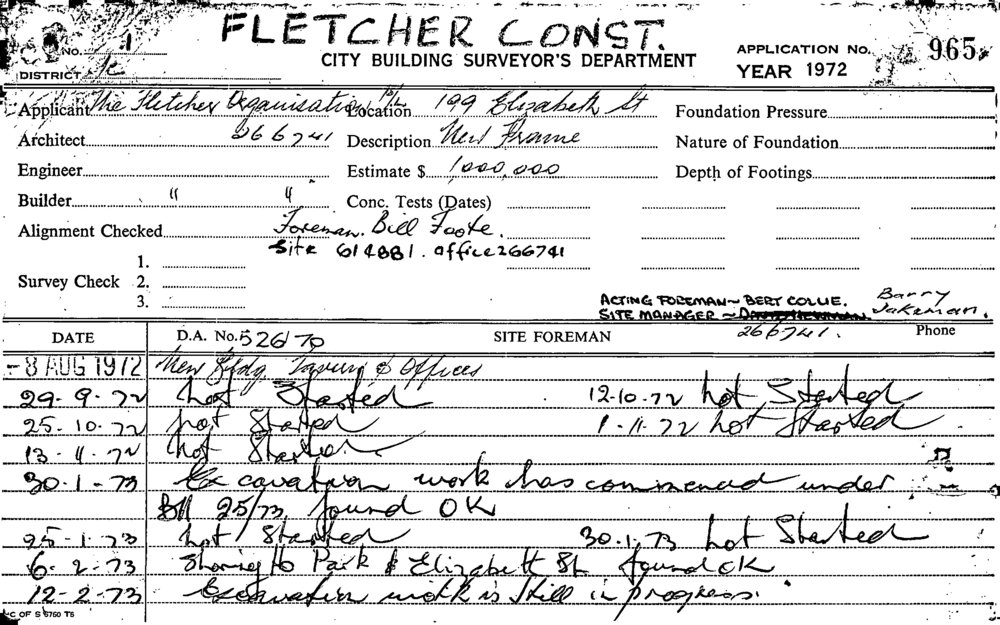 FLETCHER CONST.
No. 1
CITY BUILDING SURVEYOR'S DEPARTMENT
APPLICATION No. 965
DISTRICT
YEAR 1972
Applicant The Fletcher Organisation P/L Location 199 Elizabeth St Foundation Pressure
Architect 266741 Description New Frame Nature of Foundation
Engineer Estimate $ 1,000,000 Depth of Footings
Builder " " Conc. Tests (Dates)
Alignment Checked Foreman. Bill Foote.
Site 614881. office 266741
1.
Survey Check 2.
3.
ACTING FOREMAN ~ BERT COLLIE.
SITE MANAGER ~ Barry Jakeman.
DATE D.A. No. 526/70 SITE FOREMAN 266741. Phone
-8 AUG 1972 New Bldg Tavern & Offices
29-9-72 not Started 12-10-72 not Started
25-10-72 not Started 1-11-72 not Started
13-11-72 not Started
30-1-73 Excavation work has commenced under
BA 25/73 found OK
25-1-73 not Started 30.1.73 not Started
6-2-73 Shoring to Park & Elizabeth St found OK
12-2-73 Excavation work is still in progress.
C OF S 5760 TS